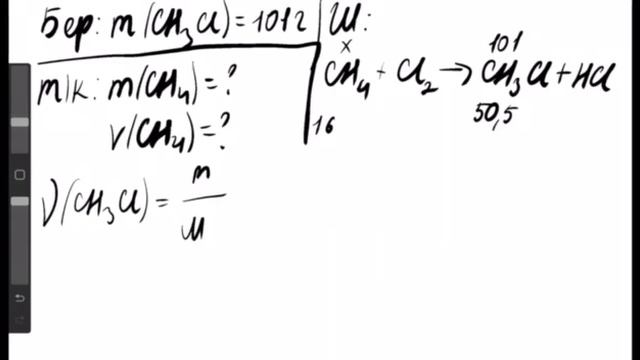 Бер: m(CH₃Cl)=101г
Ш:
т/к: m(CH₄)=?
ν(CH₄)=?
x 101
CH₄ + Cl₂ → CH₃Cl + HCl
16 50,5
ν(CH₃Cl) = m/M